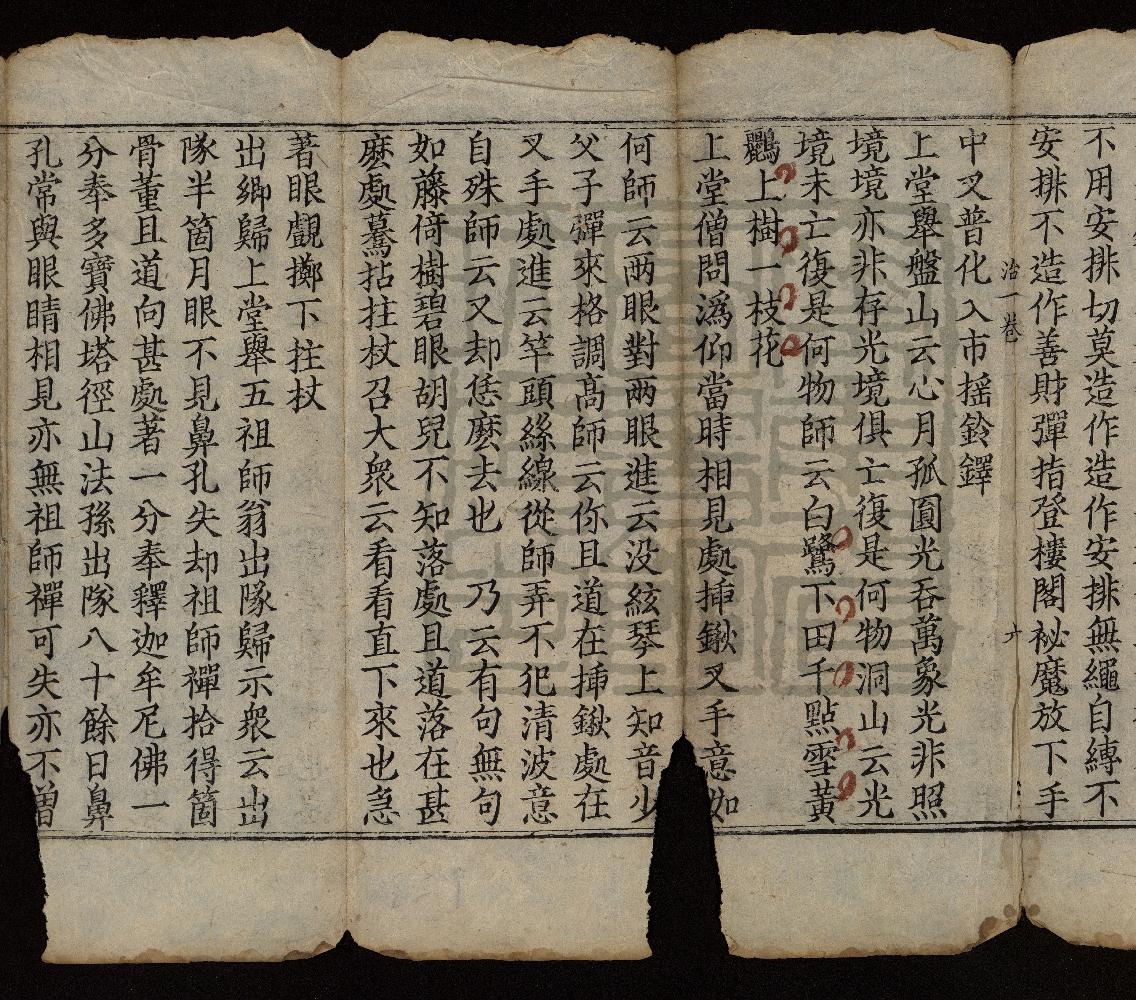 不用安排切莫造作造作安排無繩自縳不
安排不造作善財彈指登樓閣祕魔放下手
治一卷 六
中叉普化入市摇鈴鐸
上堂舉盤山云心月孤圓光吞萬象光非照
境境亦非存光境俱亡復是何物洞山云光
境未亡復是何物師云白鷺下田千點雪黃
鸝上樹一枝花
上堂僧問溈仰當時相見處揷鍬叉手意如
何師云两眼對两眼進云没絃琴上知音少
父子彈來格調髙師云你且道在揷鍬處在
叉手處進云竿頭絲線從師弄不犯清波意
自殊師云又却恁麽去也 乃云有句無句
如藤倚樹碧眼胡兒不知落處且道落在甚
麽處驀拈拄杖召大衆云看看直下來也急
著眼覰擲下拄杖
出鄉歸上堂舉五祖師翁出隊歸示衆云出
隊半箇月眼不見鼻孔失却祖師禪拾得箇
骨董且道向甚處著一分奉釋迦牟尼佛一
分奉多寶佛塔徑山法孫出隊八十餘日鼻
孔常與眼睛相見亦無祖師禪可失亦不曾